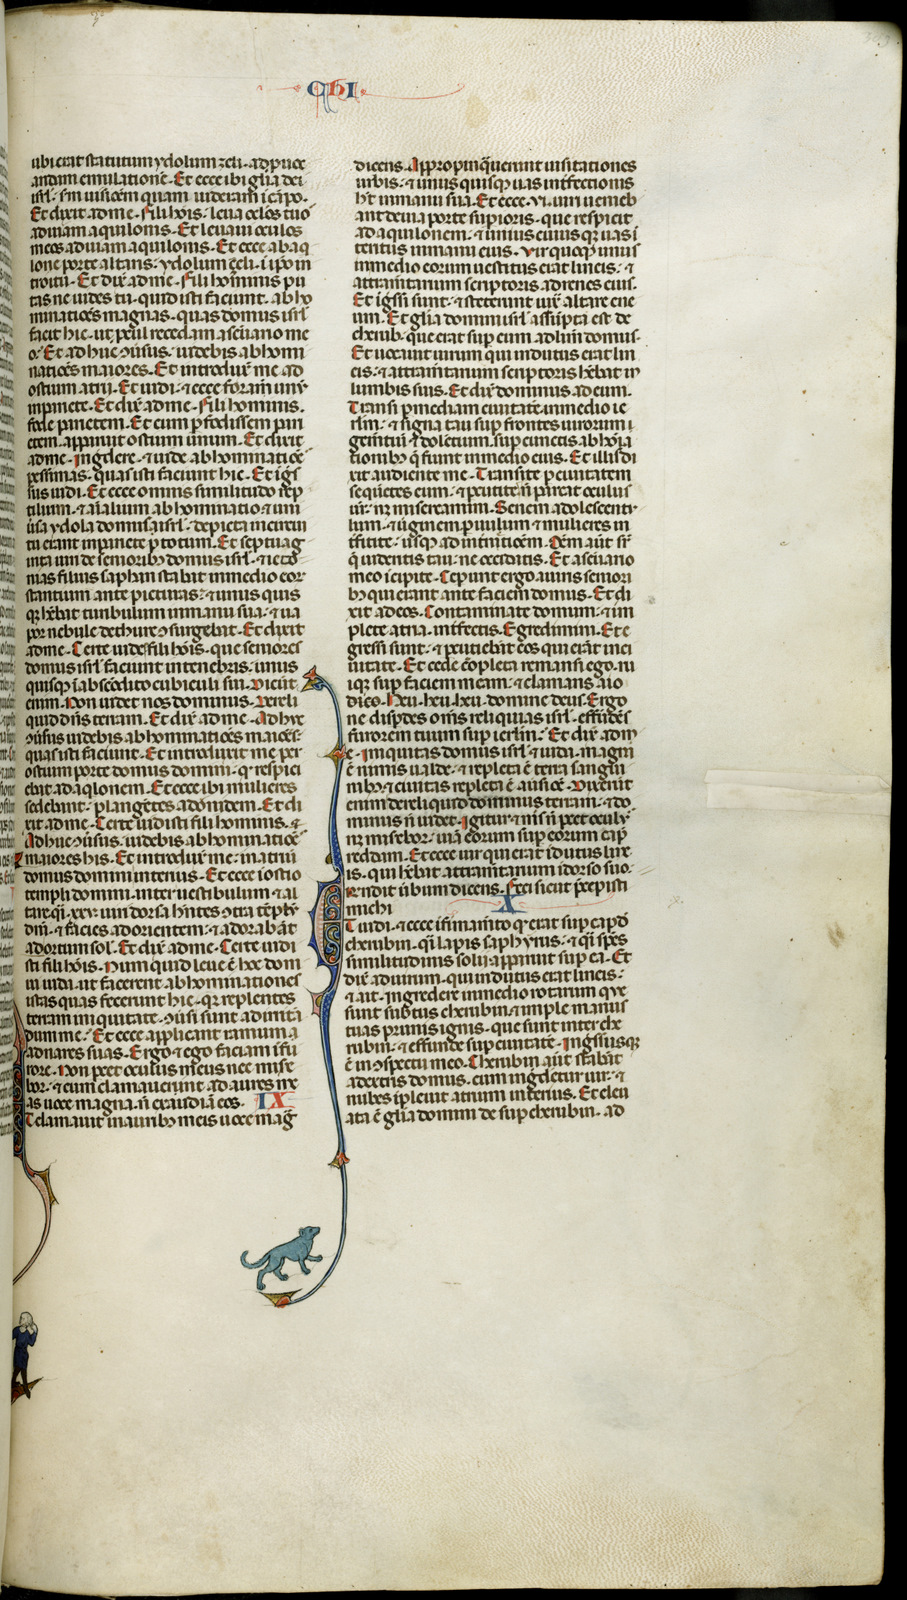 CHI
ubi erat statutum ydolum zeli· ad puoc
andam emulatione᷑· Et ecce ibi glia dei
isrl᷑· sm̅ uisione᷑ quam uideram i cāpo·
Et dixit ad me· Fili hois᷑· leua ocl̅os tuo
ad uiam aquilonis· Et leuaui oculos
meos ad uiam aquilonis· Et ecce ab aq
lone porte altaris· ydolum zeli· i ip̅o in
troitu· Et dix̅ ad me· Fili hominis pu
tas ne uides tu· quid isti faciunt· abho
minatioēs magnas· quas domus isrl̅
facit hic· ut p̅cul recedam a sc̅uario me
o᷑· Et adhuc ɔuersus᷑ uidebis abhomi
natioēs maiores· Et introduxit me ad
ostium atrii· Et uidi᷑· ⁊ ecce foram̅ unū
in pariete· Et dix̅ ad me· Fili hominis·
fode parietem· Et cum p̅fodissem pari
etem· apparuit ostium unum· Et dixit
ad me· Ingredere· ⁊ uide abhominatioēs
pessimas· quas isti faciunt hic· Et igres
sus uidi· Et ecce omnis similitudo rep
tilium· ⁊ aīalium abhominatio ⁊ uni
ūsa ydola domus isrl̅· depicta in cirēui
tu erant in pariete p̅ totum· Et septuag
inta uiri de senioribꝫ domus isrl̅· ⁊ ieco
nias filius saphan stabat in medio eor
stantium ante picturas᷑· ⁊ unus quis
qꝫ hēbat turibulum in manu sua᷑· ⁊ ua
por nebule de thure ɔsurgebat· Et dixit
ad me· Certe uides fili hois᷑· que seniores
domus isrl̅ faciunt in tenebris᷑· unus
quisqꝫ i abscōdito cubiculi sui· Dicūt
enim· Non uidet nos dominus· Dereli
quid dn̅s terram· Et dix̅ ad me· Adhuc
ɔuersus uidebis abhominatioēs maiores᷑·
quas isti faciunt· Et introduxit me per
ostium porte domus domini· qꝫ respici
ebat ad aqlonem· Et ecce ibi mulieres
sedebant᷑· plangētes adonidem· Et di
xit ad me· Certe uidisti fili hominis· ⁊
Adhuc ɔuersus᷑ uidebis abhominatioēs
maiores his· Et introdux̅ me· in atriū
domus domini interius· Et ecce i ostio
templi domini· inter uestibulum ⁊ al
tare· qi̅· xxv· uiri dorsa hn̅tes ɔtra teplū
dn̅i· ⁊ facies ad orientem᷑· ⁊ adorabāt
ad ortum sol᷑· Et dix̅ ad me· Certe uidi
sti fili hois᷑· Num quid leue ē hoc dom
ui iuda· ut facerent abhominationes
istas quas fecerunt hic· qꝫ replentes
terram iniquitate· ɔuersi sunt ad irrita
dum me᷑· Et ecce applicant ramum a
ad nares suas· Ergo ⁊ ego faciam i fu
rore· Non p̅cet oculus meus nec mise
bor᷑· ⁊ cum clamauerunt ad aures me
as uoce magna· n̄ exaudiā eos· IX
Et clamauit in auribꝫ meis uoce mag̅
dicens· Appropinq̄uerunt uisitationes
urbis᷑· ⁊ unus quisqꝫ uas interfectionis
h̅t in manu sua· Et ecce· vi· uiri ueniēb
ant de uia porte supioris· que respicit
ad aquilonem᷑· ⁊ unius cuiusqꝫ uas i
teritus in manu eius· Vir quoqꝫ unus
in medio eorum uestitus erat lineis᷑· ⁊
attramtarium scriptoris ad renes eius·
Et ig̅ssi sunt᷑· ⁊ steterunt iux̅ altare ene
um· Et glia domini isrl̅ assūpta est de
cherub᷑· que erat sup eum ad limī domus·
Et uocauit uirum qui indutus erat lin
eis᷑· ⁊ attramtarium scriptoris hēbat in
lumbis suis· Et dix̅ dominus ad eum·
Transi p mediam ciuitatē· in medio ie
rlm̅᷑· ⁊ signa tau sup frontes uirorum
gemtiū ⁊ dolētium· sup cunctis abhoīa
tionibꝫ q̄ fiunt in medio eius· Et illis di
xit audiente me· Transite p ciuitatem
seq̄ntes eum᷑· ⁊ p̅cutite᷑ n̄ parcat oculus
ur̅᷑· nꝫ misereamini· Senem adolescentu
lum᷑· ⁊ uirginem p̅uulum ⁊ mulieres in
terficite᷑· usqꝫ ad internitioēm· Oēm aut̅ sr̅
q̄ uidentis tau᷑· ne occidatis· Et a sc̅uario
meo icipite· Ceperunt ergo a uiris seniori
bꝫ qui erant ante faciem domus· Et di
xit ad eos· Contaminate domum᷑· ⁊ im
plete atria· interfectis· Egredimini· Et e
gressi sunt᷑· ⁊ p̅cutiebāt eos qui erāt in ci
uitate· Et cede cōpleta remansi ego· ru
iqꝫ sup faciem meam᷑· ⁊ clamans aio
dico· heu· heu· heu· domine deus· Ergo
ne disp̅des om̅s reliquias isrl̅· effūdēs
furorem tuum sup ierlm̅᷑· Et dix̅ ad m
e· Iniquitas domus isrl̅ ⁊ iuda· magna
ē nimis ualde᷑· ⁊ repleta ē terra sangui
nibꝫ᷑· ⁊ ciuitas repleta ē auersione· Dixerūt
enim dereliquid dominus terram᷑· ⁊ do
minus n̄ uidet· Igitur ⁊ ms̅ n̄ p̅cet oculꝰ
nꝫ misebor᷑· uiā eorum sup eorum cap̅
reddam· Et ecce uir qui erat idutus line
is· qui hēbat attramtarium i dorso suo᷑·
r̅ndit ūbum dicens· Feci sicut p̅cepisti
michi X
Et uidi᷑· ⁊ ecce i firmam̅to qꝫ erat sup cap̅d
cherubin· qi̅ lapis saphyrus᷑· ⁊ qi̅ sp̅es
similitudinis solii· apparuit sup ea· Et
dix̅ ad uirum· qui indutus erat lineis᷑·
⁊ ait· Ingredere in medio rotarum que
sunt subtus cherubin· ⁊ imple manus
tuas prunis ignis· que sunt inter che
rubin᷑· ⁊ effunde sup ciuitatē· Ing̅ssusqꝫ
ē in ɔspectu meo· Cherubin aut̅ stabāt
a dextris domus· cum ing̅deretur uir᷑· ⁊
nubes ipleuit atrium interius· Et eleu
ata ē glia domini de sup cherubin· ad